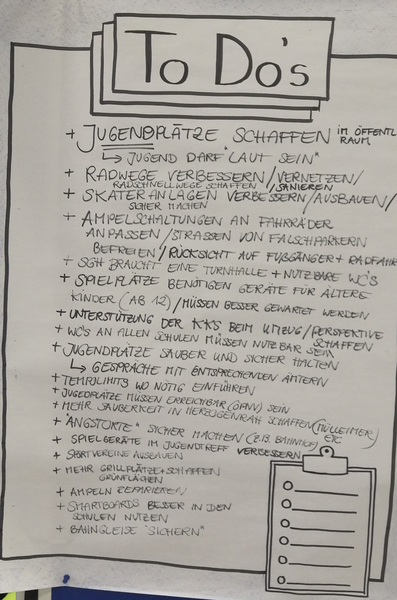 To Do's
+ JUGENDPLÄTZE SCHAFFEN IM ÖFFENTL.
RAUM
↳ JUGEND DARF "LAUT SEIN"
+ RADWEGE VERBESSERN/VERNETZEN/
RADSCHNELLWEGE SCHAFFEN/SANIEREN
+ SKATERANLAGEN VERBESSERN/AUSBAUEN/
SICHER MACHEN
+ AMPELSCHALTUNGEN AN FAHRRÄDER
ANPASSEN/STRASSEN VON FALSCHPARKERN
BEFREIEN/RÜCKSICHT AUF FUßGÄNGER + RADFAHR
+ SGH BRAUCHT EINE TURNHALLE + NUTZBARE WC'S
+ SPIELPLÄTZE BENÖTIGEN GERÄTE FÜR ÄLTERE
KINDER (AB 12)/MÜSSEN BESSER GEWARTET WERDEN
+ UNTERSTÜTZUNG DER KKS BEIM UMZUG/PERSPEKTIVE
SCHAFFEN
+ WC'S AN ALLEN SCHULEN MÜSSEN NUTZBAR SEIN
+ JUGENDPLÄTZE SAUBER UND SICHER HALTEN
↳ GESPRÄCHE MIT ENTSPRECHENDEN ÄMTERN
+ TEMPOLIMITS WO NÖTIG EINFÜHREN
+ JUGENDPLÄTZE MÜSSEN ERREICHBAR (ÖPNV) SEIN
+ MEHR SAUBERKEIT IN HERZOGENRATH SCHAFFEN (MÜLLEIMER)
+ "ANGSTORTE" SICHER MACHEN (Z.B. BAHNHOF) ETC
+ SPIELGERÄTE IM JUGENDTREFF VERBESSERN
+ SPORTVEREINE AUSBAUEN
+ MEHR GRILLPLÄTZE + SCHAFFEN
GRÜNFLÄCHEN
+ AMPELN REPARIEREN
+ SMARTBOARDS BESSER IN DEN
SCHULEN NUTZEN
+ BAHNGLEISE "SICHERN"